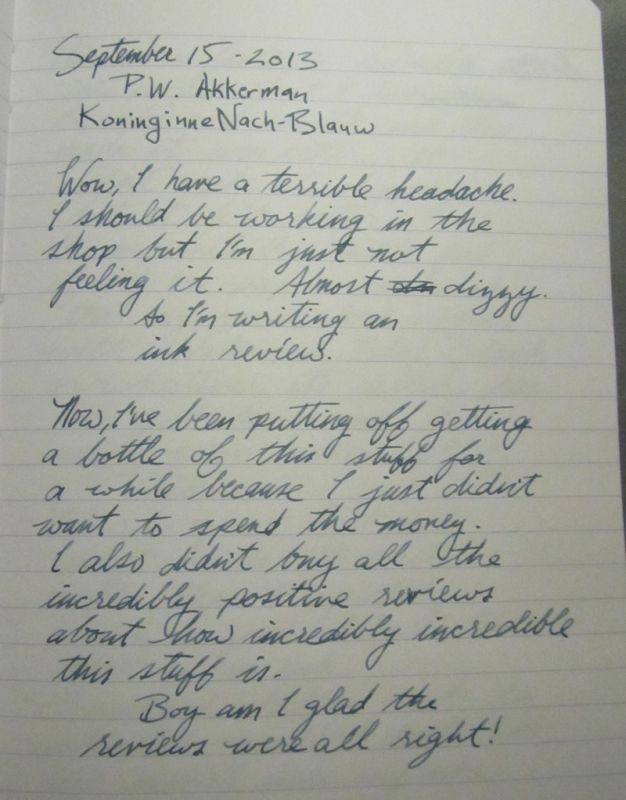 September 15 - 2013
P.W. Akkerman
KoninginneNach-Blauw
Wow, I have a terrible headache.
I should be working in the
shop but I'm just not
feeling it. Almost dizzy.
So I'm writing an
ink review.
Now, I've been putting off getting
a bottle of this stuff for
a while because I just didn't
want to spend the money.
I also didn't buy all the
incredibly positive reviews
about how incredibly incredible
this stuff is.
Boy am I glad the
reviews were all right!